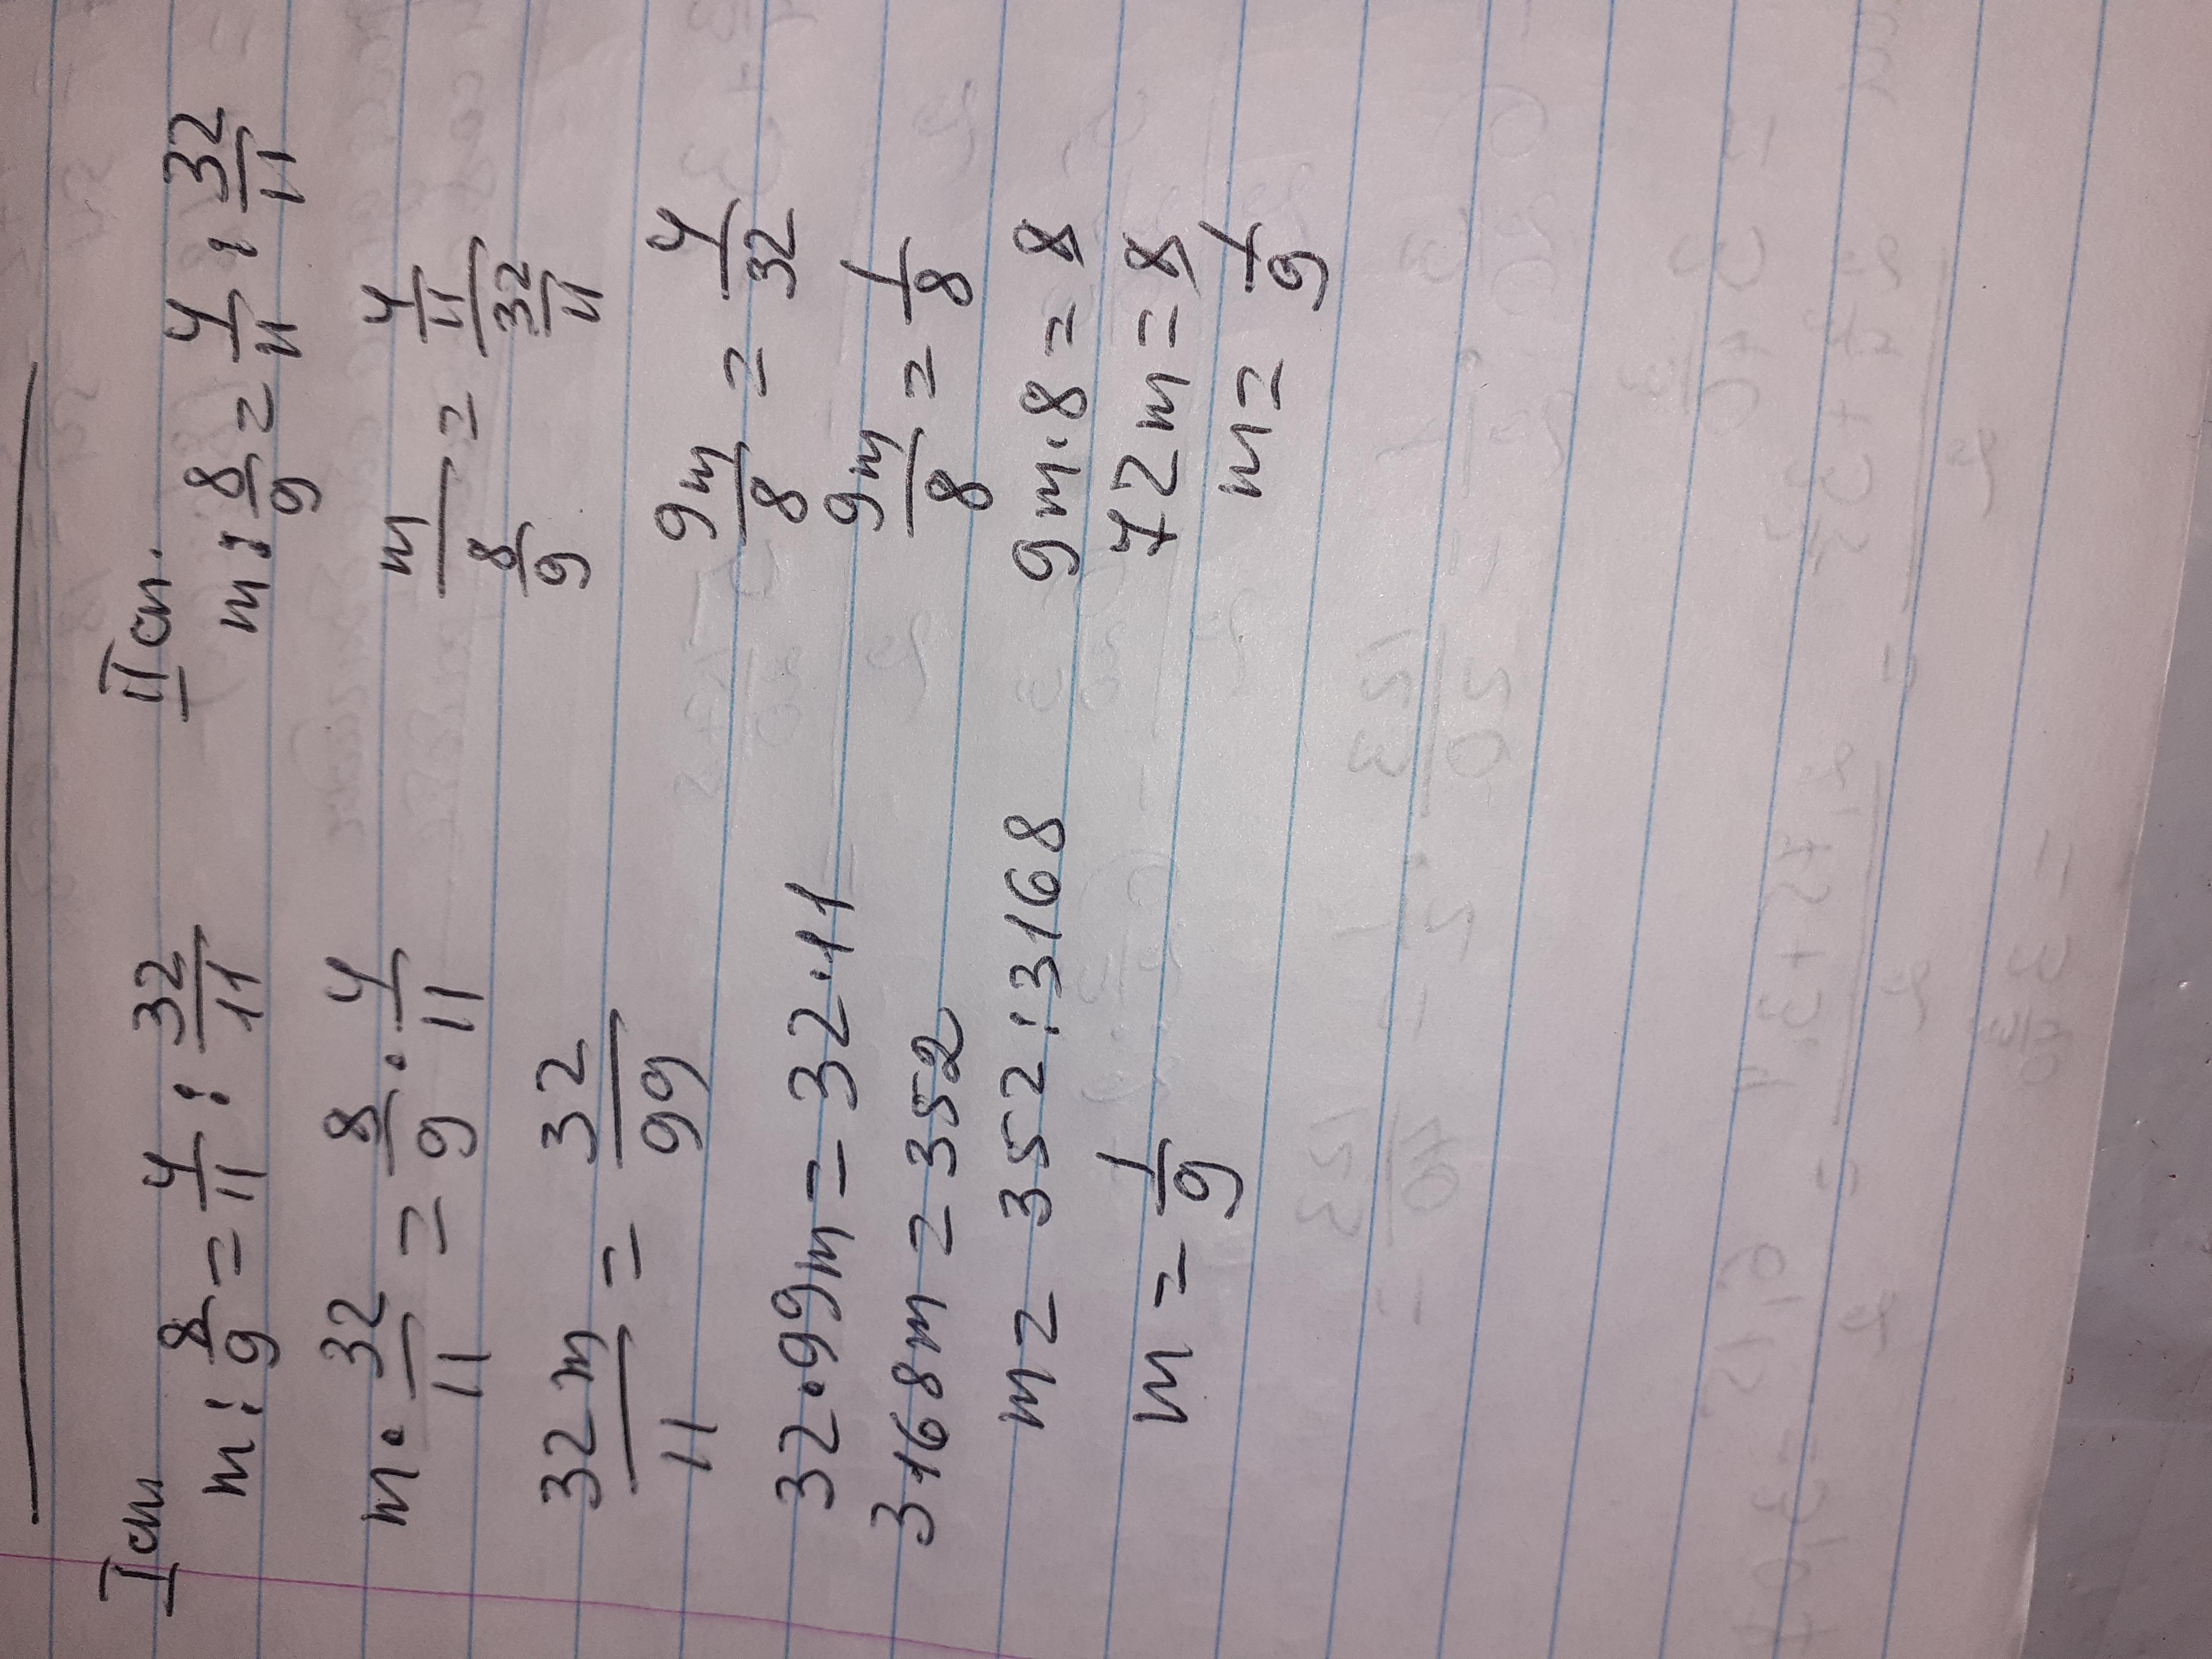 I сп
m : 8/9 = 4/11 : 32/11
m · 32/11 = 8/9 · 4/11
32m/11 = 32/99
32·99m = 32·11
3168m = 352
m = 352 : 3168
m = 1/9
II сп.
m : 8/9 = 4/11 : 32/11
m/(8/9) = (4/11)/(32/11)
9m/8 = 4/32
9m/8 = 1/8
9m·8 = 8
72m = 8
m = 1/9